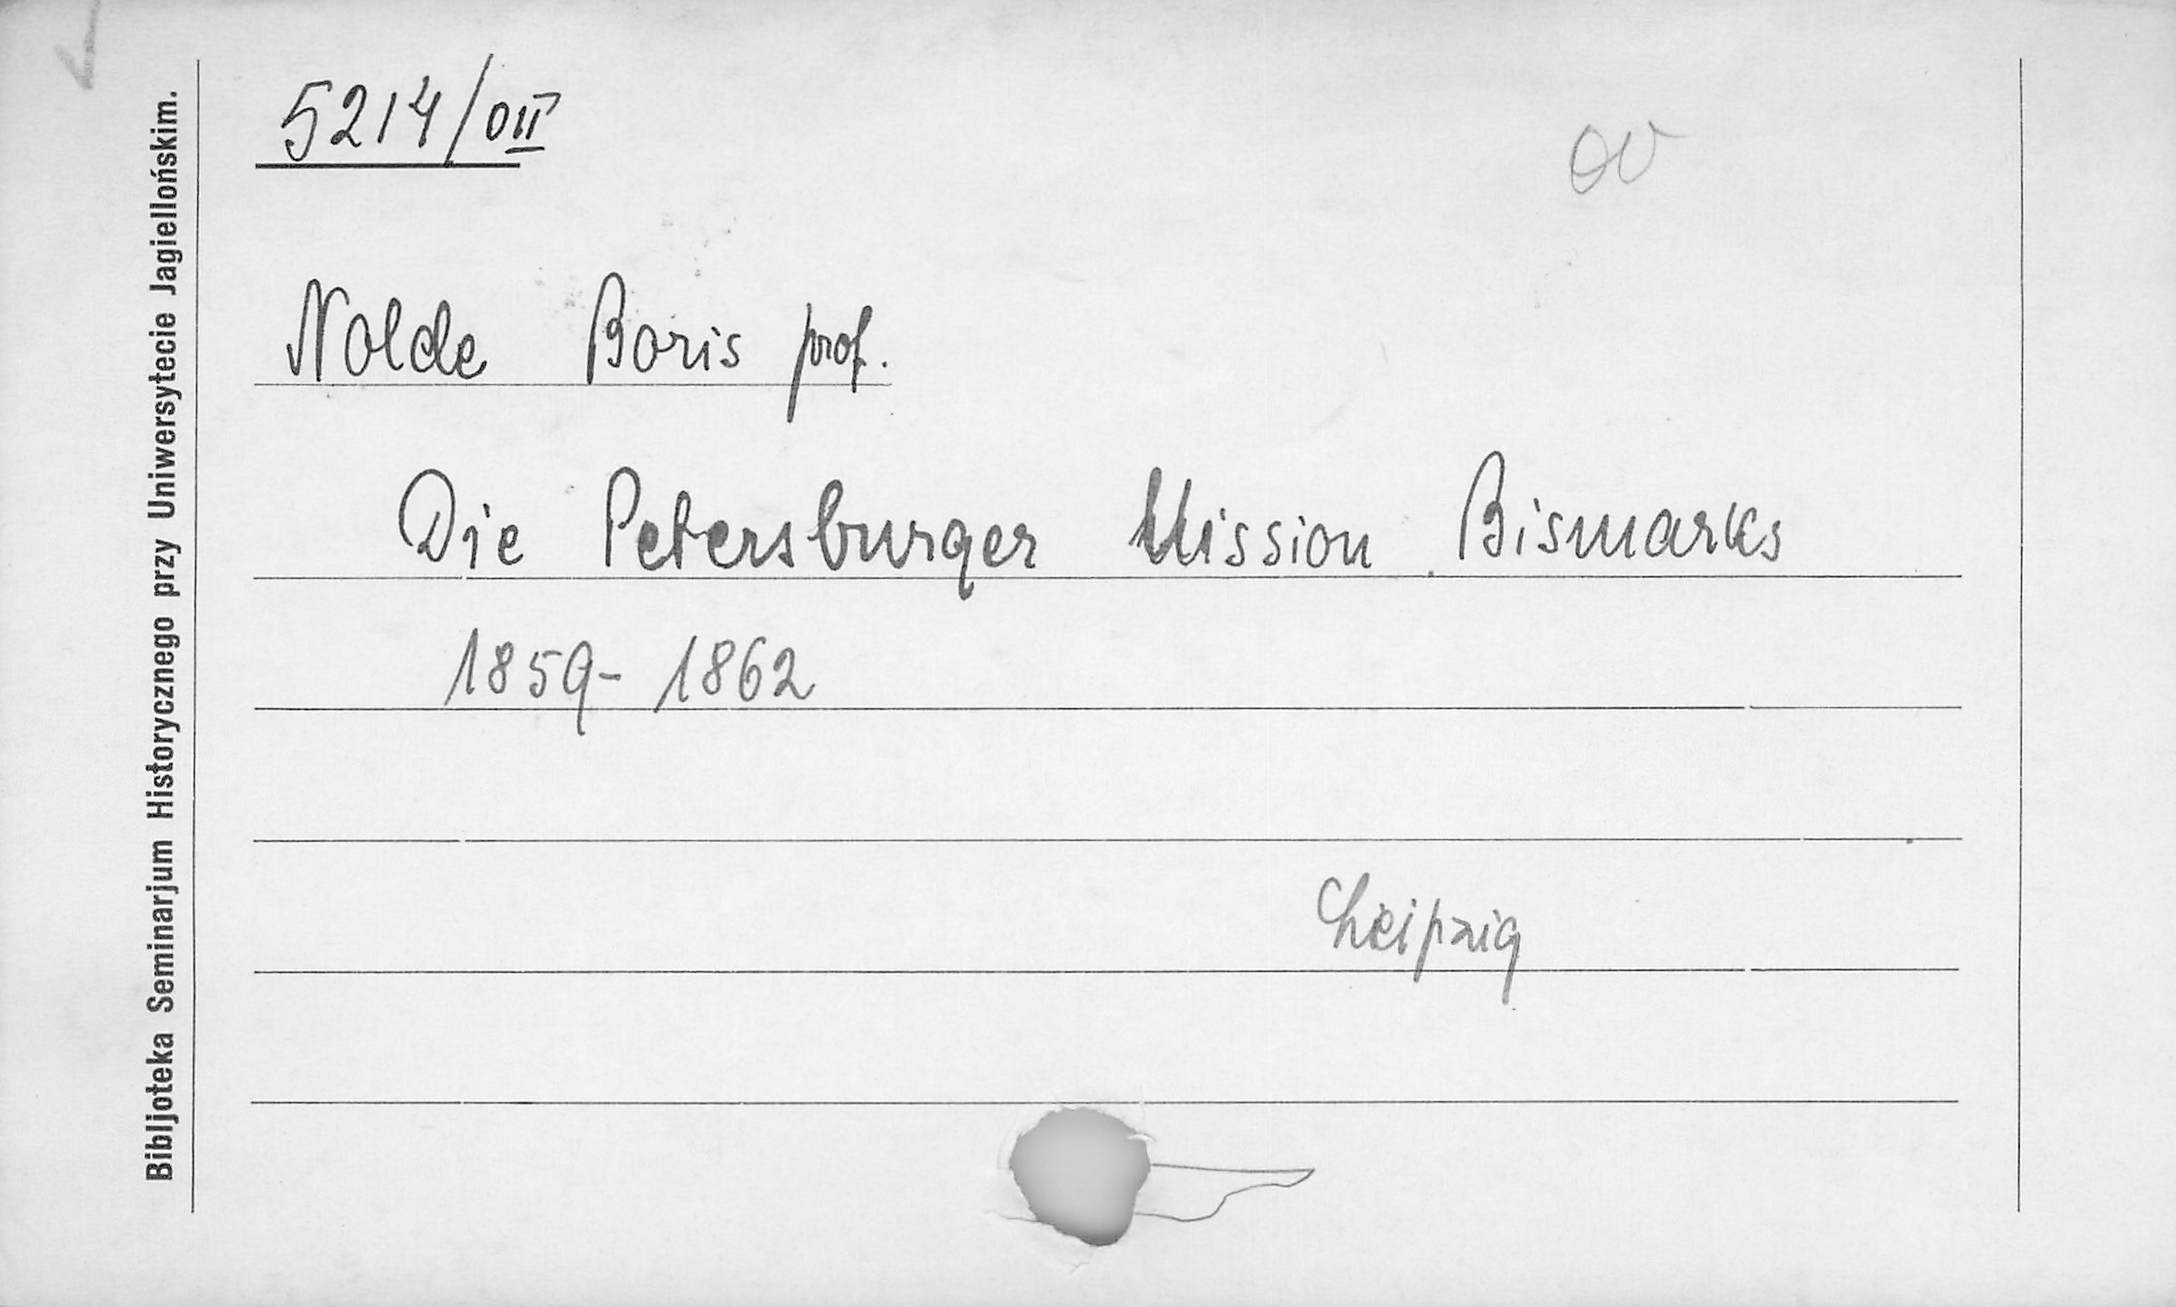 5214/OII
Nolde Boris prof.
Die Petersburger Mission Bismarks
1859-1862
Leipzig
Bibljoteka Seminarjum Historycznego przy Uniwersytecie Jagiellońskim.